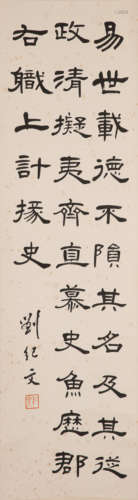 易世載德不隕其名及其從
政清擬夷齊直慕史魚歷郡
右職上計掾史
劉紀文